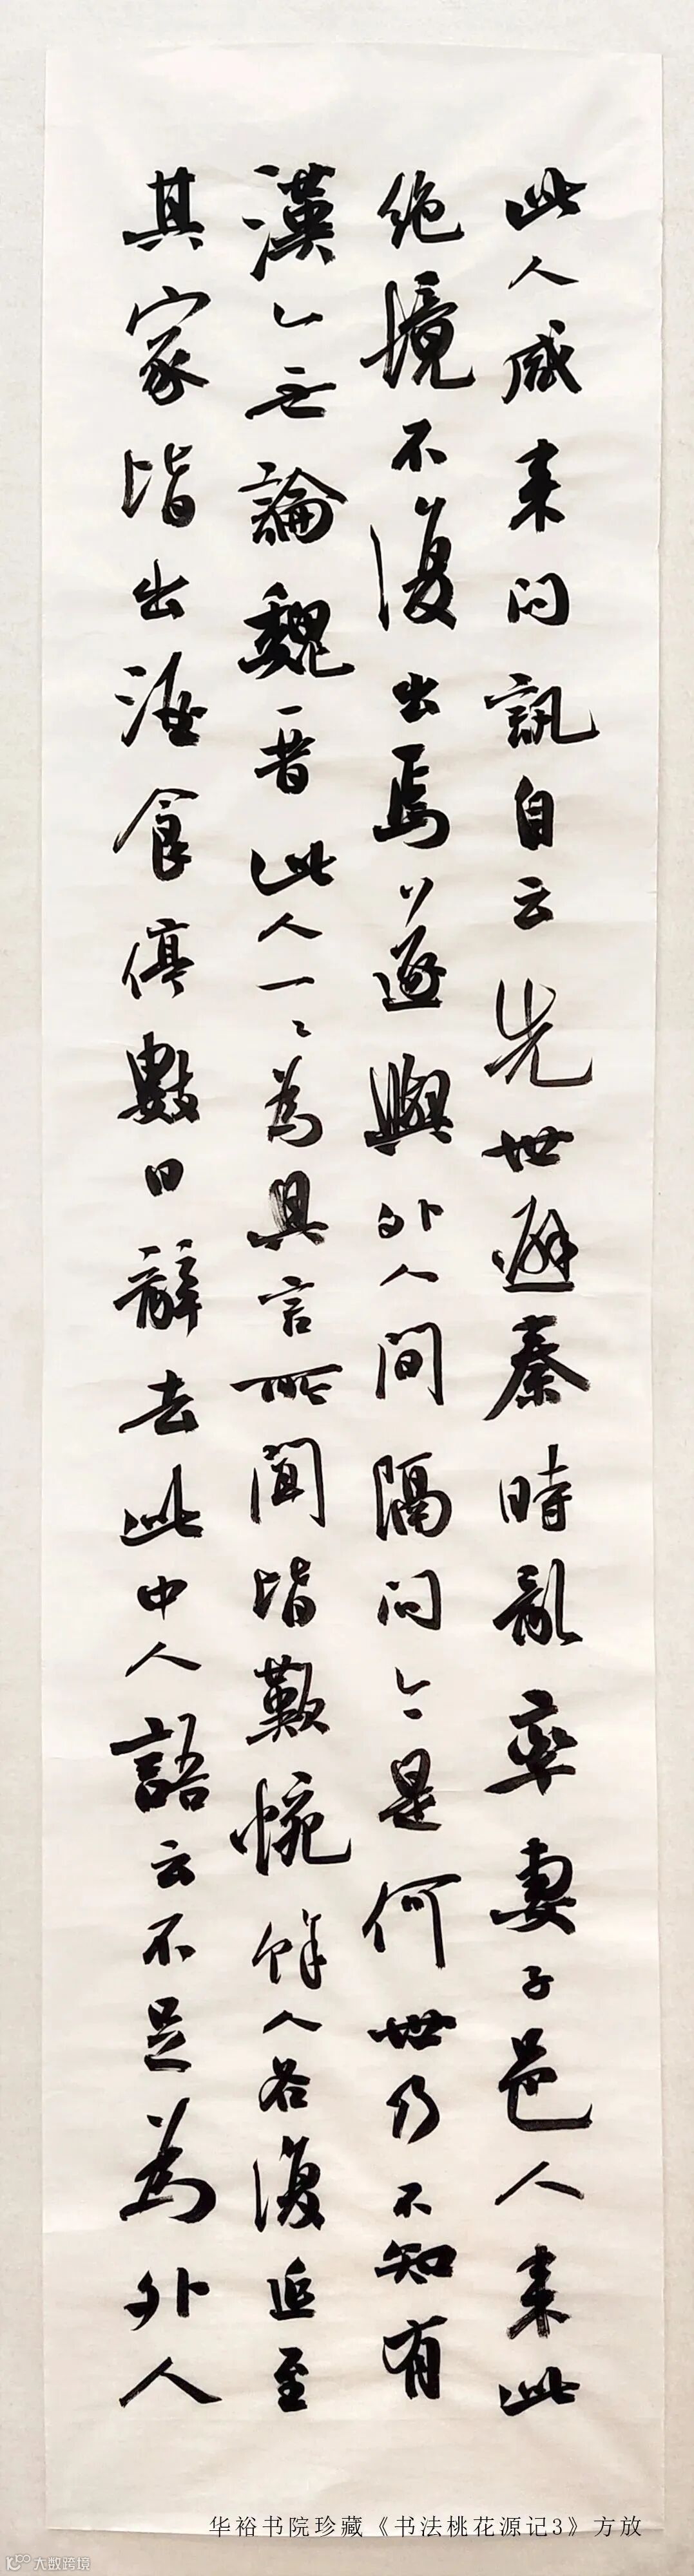 此人咸来问訊自云先世避秦時乱率妻子邑人来此
绝境不復出焉遂與外人间隔问今是何世乃不知有
漢无論魏晋此人一々為具言所闻皆歎惋餘人各復延至
其家皆出酒食停數日辭去此中人語云不足為外人
华裕书院珍藏《书法桃花源记3》方放
大数跨境